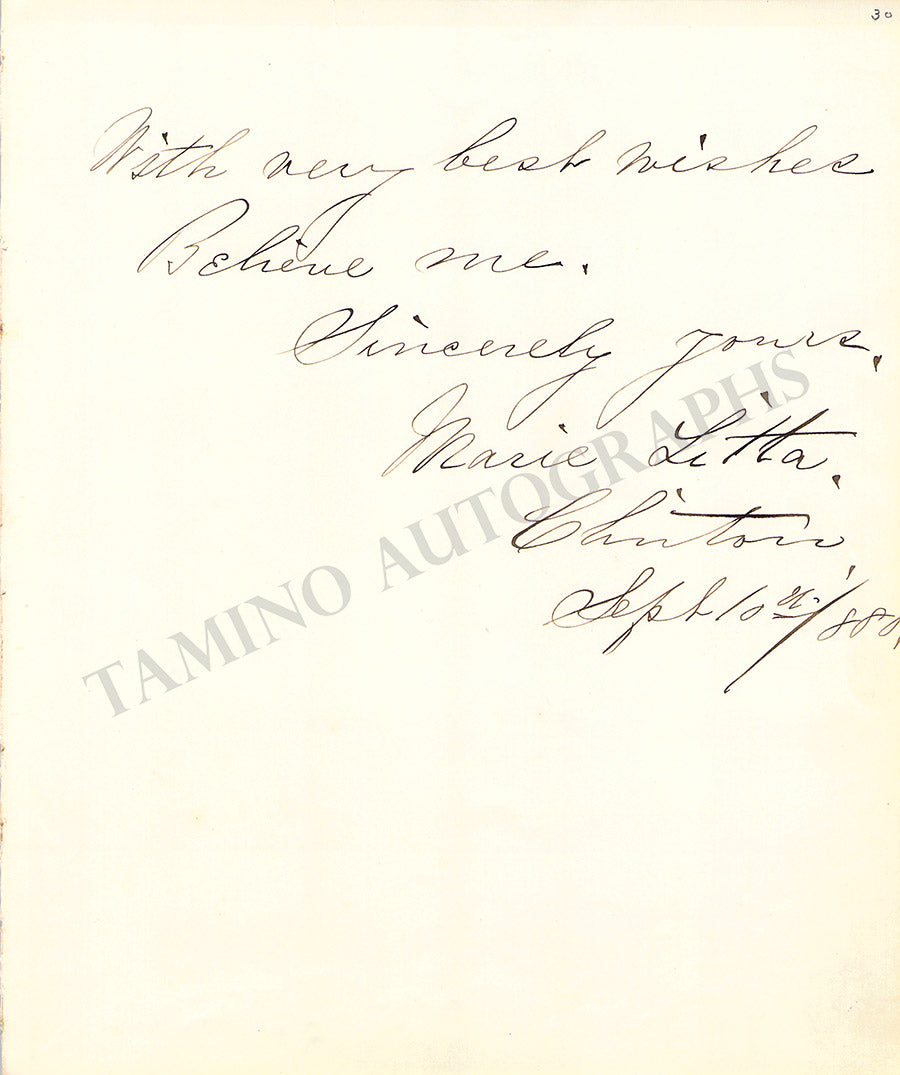 30
With very best wishes
Believe me.
Sincerely yours,
Marie Litta.
Clinton,
Sept 10th/1880.
TAMINO AUTOGRAPHS